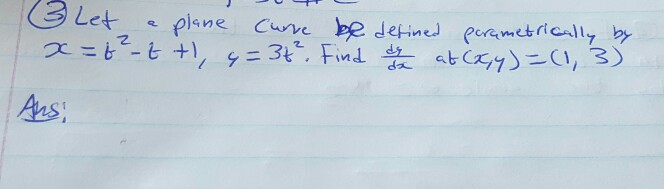 ③ Let a plane curve be defined parametrically by
x = t² - t + 1, y = 3t². Find dy/dx at (x,y) = (1, 3)
Ans: